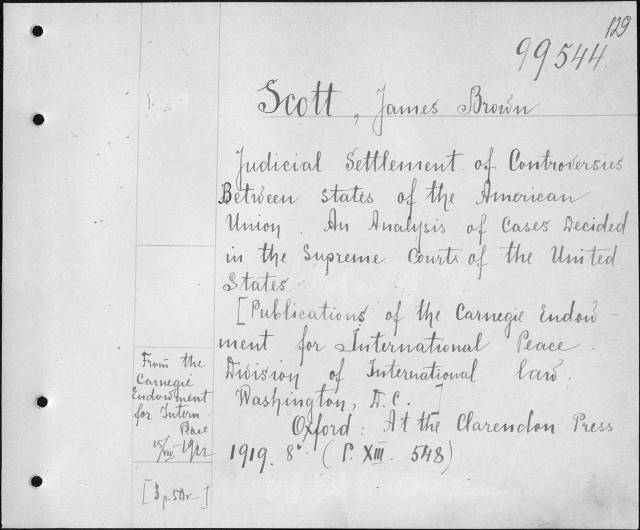 129
99544.
Scott, James Brown
Judicial Settlement of Controversies
Between States of the American
Union. An Analysis of Cases Decided
in the Supreme Courts of the United
States.
[Publications of the Carnegie Endow-
ment for International Peace.
Division of International law.
Washington, D.C.]
Oxford: At the Clarendon Press
1919. 8° (P. XIII. 548)
From the
Carnegie
Endowment
for Intern
Peace
15/VIII-1922